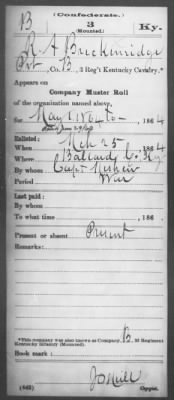 (Confederate.)
B 3 Ky.
(Mounted.)
R A Breckinridge
Pvt, Co. B, 3 Reg't Kentucky Cavalry.*
Appears on
Company Muster Roll
of the organization named above,
for May 1, 1864 to 186 4
Enlisted:
When Mch 25 186 4
Where Ballard Co Ky
By whom Capt
Period War
Last paid:
By whom
To what time 186 .
Present or absent Present
Remarks:
*This company was also known as Company B, 3d Regiment
Kentucky Infantry (Mounted).
Book mark:
Copyist.